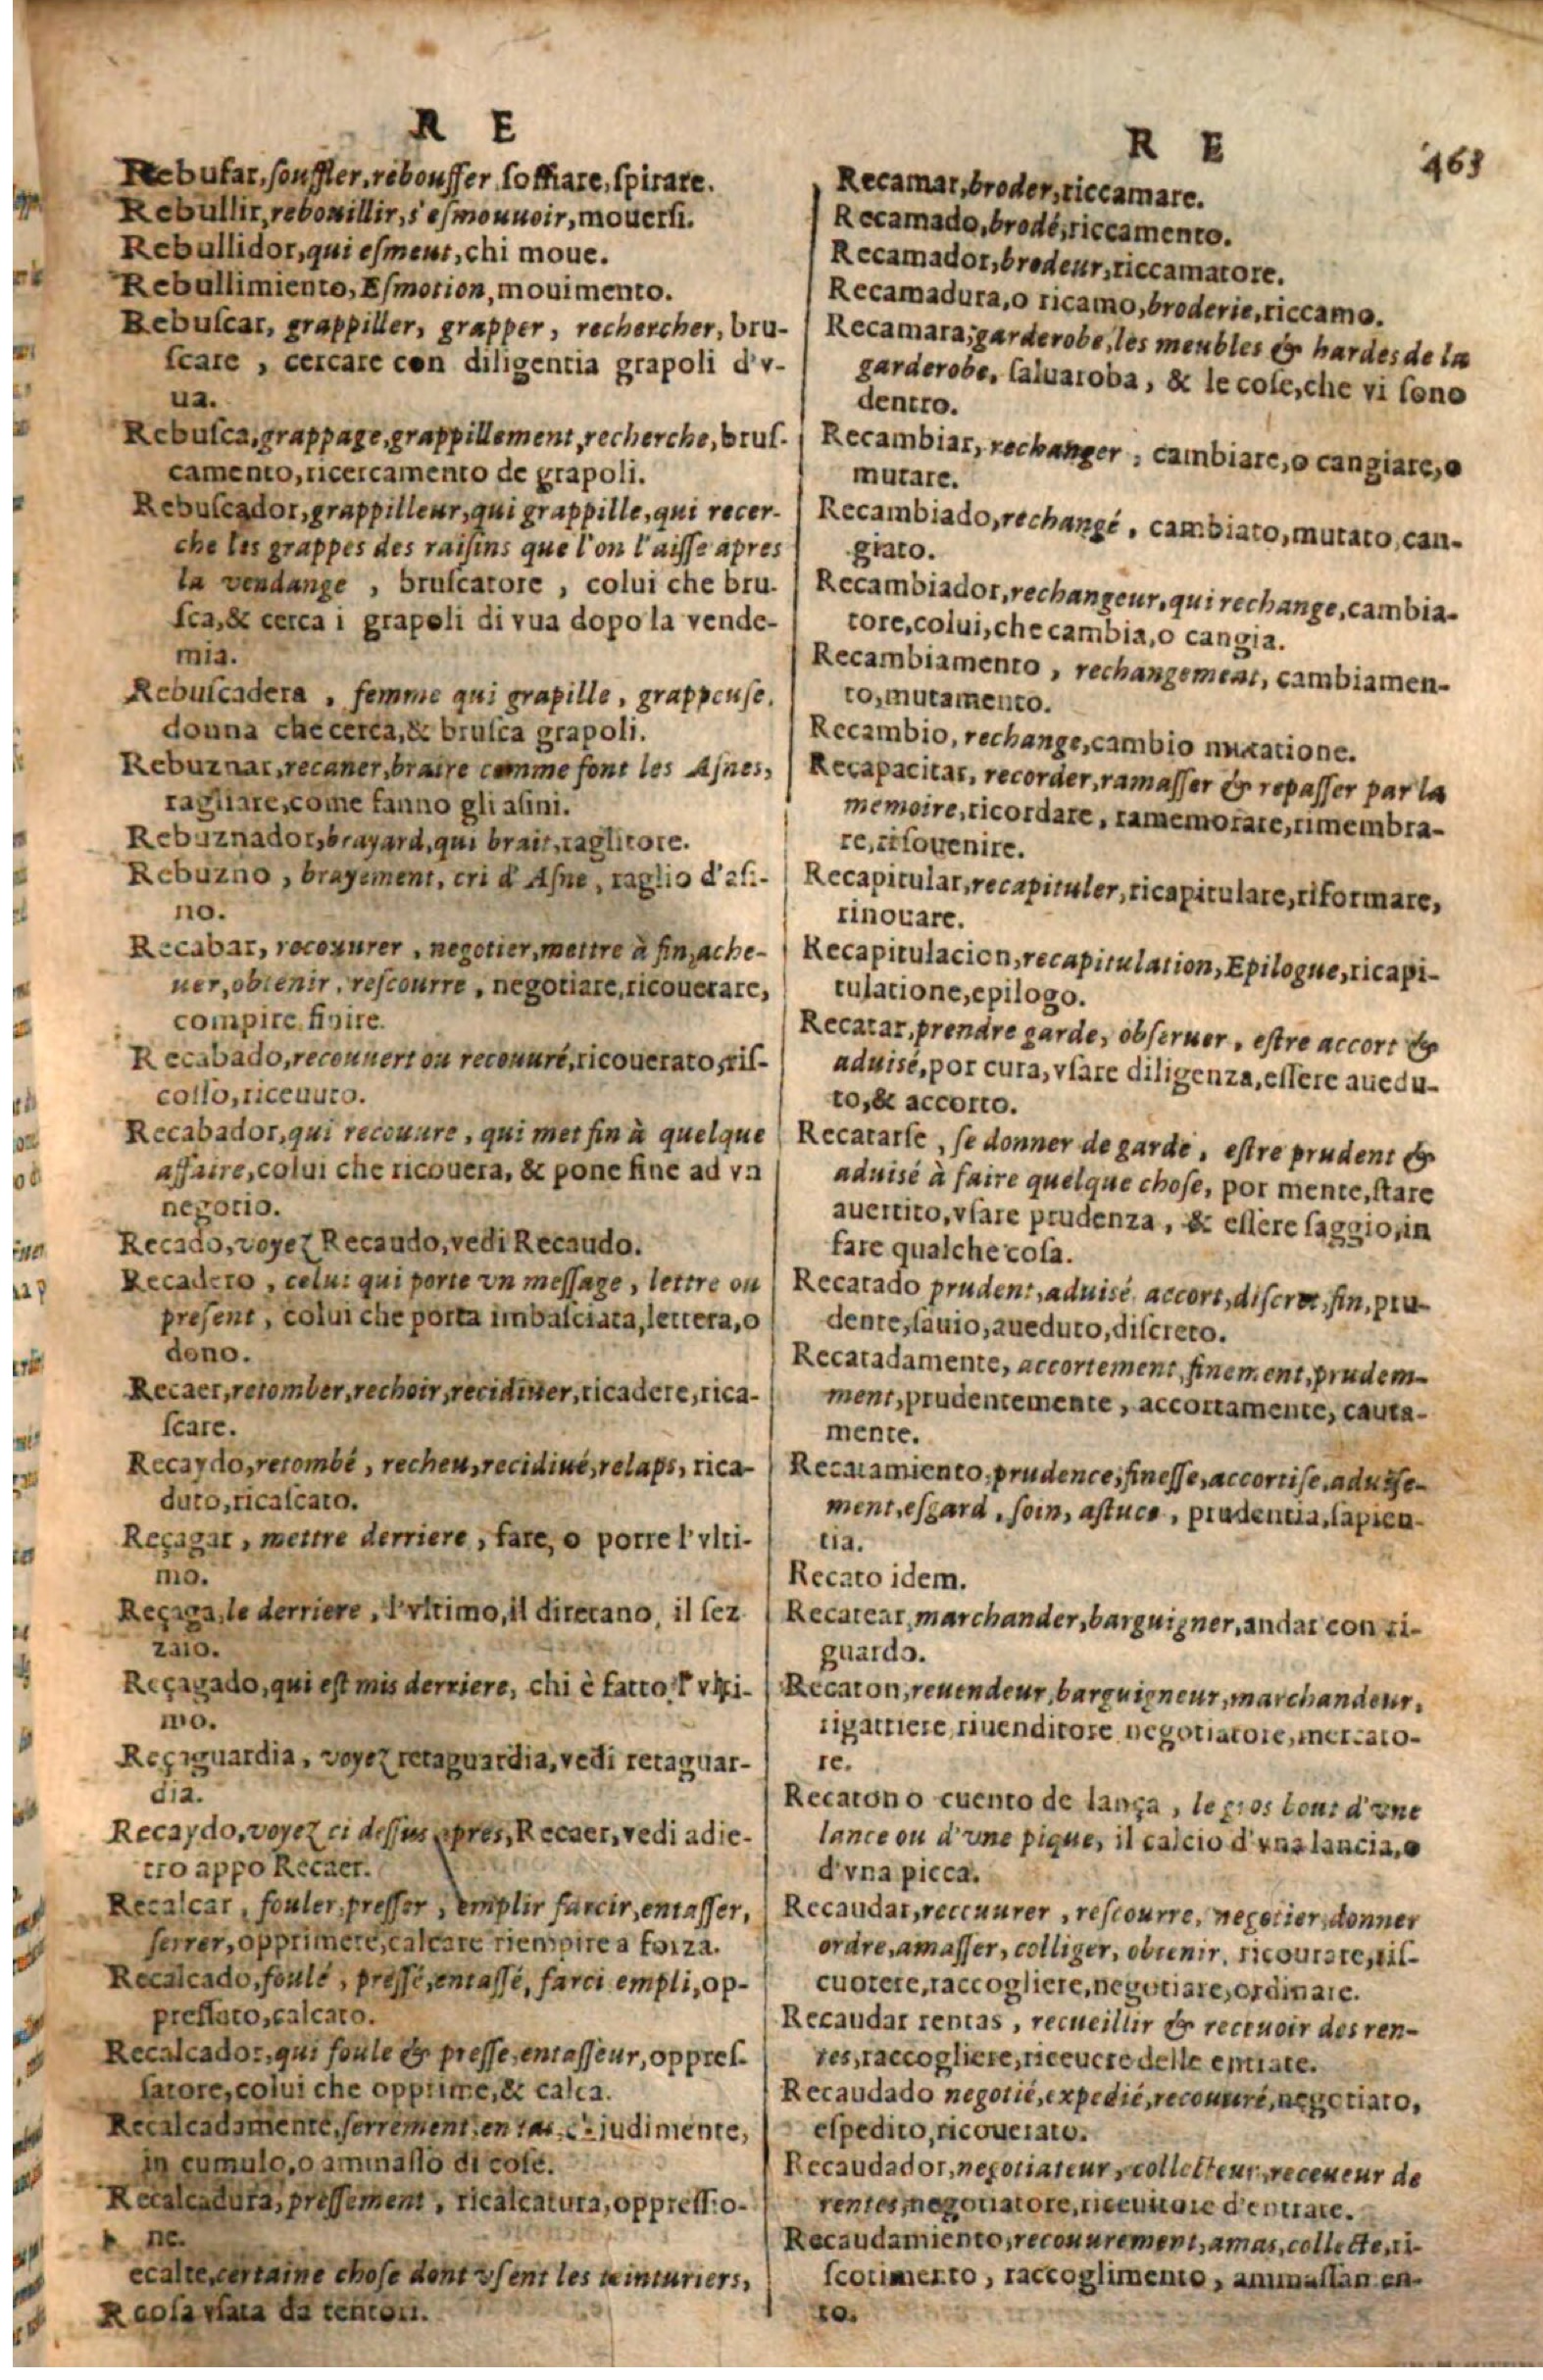 R E
Rebufar, souffler, rebouffer soffiare, spirare.
Rebullir, rebouillir, s'esmouuoir, mouersi.
Rebullidor, qui esmeut, chi moue.
Rebullimiento, Esmotion, mouimento.
Rebuscar, grappiller, grapper, rechercher, bru-
scare, cercare con diligentia grapoli d'v-
ua.
Rebusca, grappage, grappillement, recherche, brus-
camento, ricercamento de grapoli.
Rebuscador, grappilleur, qui grappille, qui recer-
che les grappes des raisins que l'on l'aisse apres
la vendange, bruscatore, colui che bru-
sca, & cerca i grapoli di vua dopo la vende-
mia.
Rebuscadera, femme qui grapille, grappeuse,
donna che cerca, & brusca grapoli.
Rebuznar, recaner, braire comme font les Asnes,
ragliare, come fanno gli asini.
Rebuznador, brayard, qui brait, raglitore.
Rebuzno, brayement, cri d'Asne, raglio d'asi-
no.
Recabar, recouurer, negotier, mettre à fin, ache-
uer, obtenir, rescourre, negotiare, ricouerare,
compire finire.
Recabado, recouuert ou recouuré, ricouerato, ris-
cosso, riceuuto.
Recabador, qui recouure, qui met fin à quelque
affaire, colui che ricouera, & pone fine ad vn
negotio.
Recado, voyez Recaudo, vedi Recaudo.
Recadero, celui qui porte vn message, lettre ou
present, colui che porta imbasciata, lettera, o
dono.
Recaer, retomber, rechoir, recidiuer, ricadere, rica-
scare.
Recaydo, retombé, recheu, recidiué, relaps, rica-
duto, ricascato.
Reçagar, mettre derriere, fare, o porre l'vlti-
mo.
Reçaga, le derriere, l'vltimo, il diretano, il sez
zaio.
Reçagado, qui est mis derriere, chi è fatto l'vlti-
mo.
Reçaguardia, voyez retaguardia, vedi retaguar-
dia.
Recaydo, voyez ci dessus apres, Recaer, vedi adie-
tro appo Recaer.
Recalcar, fouler, presser, emplir farcir, entasser,
serrer, opprimere, calcare riempire a forza.
Recalcado, foulé, pressé, entassé, farci empli, op-
pressato, calcato.
Recalcador, qui foule & presse, entasseur, oppres-
satore, colui che opprime, & calca.
Recalcadamente, serrement, en tas, judimente,
in cumulo, o aminasso di cose.
Recalcadura, pressement, ricalcatura, oppressio-
ne.
ecalte, certaine chose dont vsent les teinturiers,
R cosa vsata da tentori.
R E
463
Recamar, broder, riccamare.
Recamado, brodé, riccamento.
Recamador, brodeur, riccamatore.
Recamadura, o ricamo, broderie, riccamo.
Recamara, garderobe, les meubles & hardes de la
garderobe, saluaroba, & le cose, che vi sono
dentro.
Recambiar, rechanger, cambiare, o cangiare, o
mutare.
Recambiado, rechangé, cambiato, mutato, can-
giato.
Recambiador, rechangeur, qui rechange, cambia-
tore, colui, che cambia, o cangia.
Recambiamento, rechangement, cambiamen-
to, mutamento.
Recambio, rechange, cambio mutatione.
Recapacitar, recorder, ramasser & repasser par la
memoire, ricordare, ramemorare, rimembra-
re, risouenire.
Recapitular, recapituler, ricapitulare, riformare,
rinouare.
Recapitulacion, recapitulation, Epilogue, ricapi-
tulatione, epilogo.
Recatar, prendre garde, obseruer, estre accort &
aduisé, por cura, vsare diligenza, essere auedu-
to, & accorto.
Recatarse, se donner de garde, estre prudent &
aduisé à faire quelque chose, por mente, stare
auertito, vsare prudenza, & essere saggio, in
fare qualche cosa.
Recatado prudent, aduisé, accort, discret, fin, pru-
dente, sauio, aueduto, discreto.
Recatadamente, accortement, finement, prudem-
ment, prudentemente, accortamente, cauta-
mente.
Recatamiento, prudence, finesse, accortise, aduise-
ment, esgard, soin, astuce, prudentia, sapien-
tia.
Recato idem.
Recatear, marchander, barguigner, andar con ri-
guardo.
Recaton, reuendeur, barguigneur, marchandeur,
rigattiere, riuenditore, negotiatore, mercato-
re.
Recaton o cuento de lança, le gros bout d'vne
lance ou d'vne pique, il calcio d'vna lancia, o
d'vna picca.
Recaudar, reccuurer, rescourre, negotier, donner
ordre, amasser, colliger, obtenir, ricourare, ris-
cuotere, raccogliere, negotiare, ordinare.
Recaudar rentas, recueillir & receuoir des ren-
tes, raccogliere, riceuere delle entrate.
Recaudado negotié, expedié, recouuré, negotiato,
espedito, ricouerato.
Recaudador, negotiateur, collecteur, receueur de
rentes, negotiatore, riceuitore d'entrate.
Recaudamiento, recouurement, amas, collecte, ri-
scotimento, raccoglimento, ammassamen-
to.